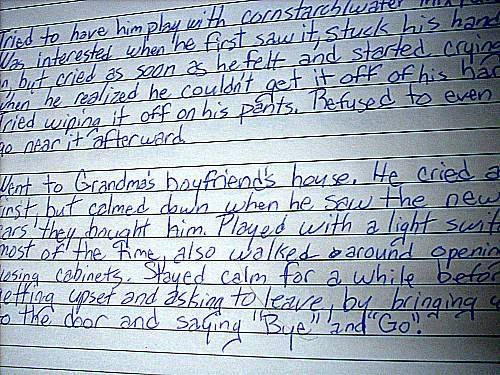 Tried to have him play with cornstarch/water
Was interested when he first saw it, stuck his hand
n, but cried as soon as he felt and started crying
when he realized he couldn't get it off of his han
Tried wiping it off on his pants. Refused to even
go near it afterward.
Went to Grandma's boyfriend's house. He cried a
irst, but calmed down when he saw the new
ars they bought him. Played with a light swit
most of the time, also walked around openin
losing cabinets. Stayed calm for a while befor
etting upset and asking to leave, by bringing
o the door and saying "Bye" and "Go".